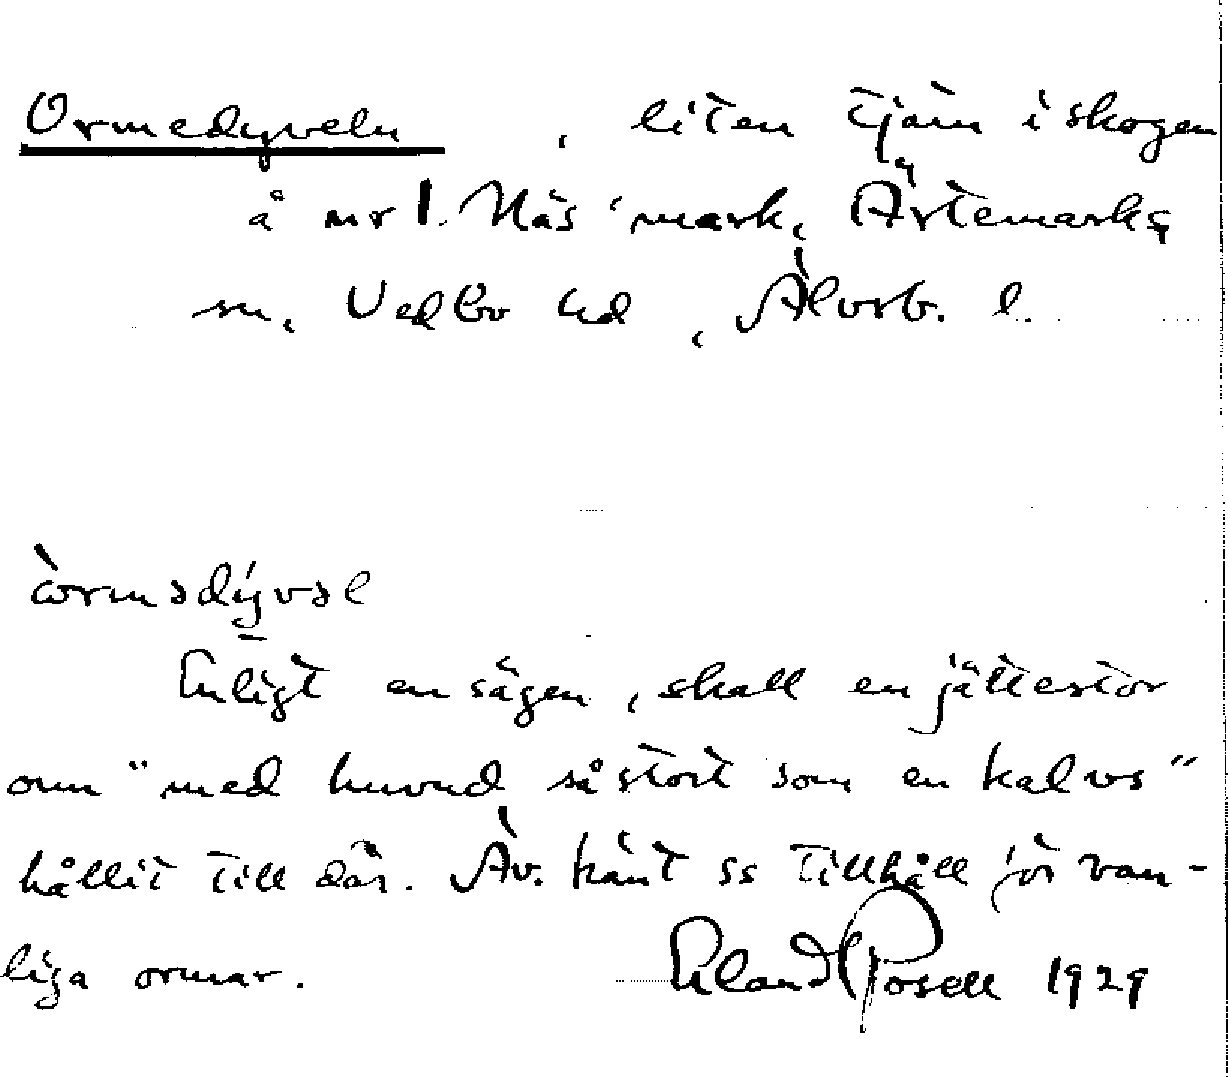 Ormedyveln, liten tjärn i skogen
å nr 1. Näs' mark, Ärtemarks
sn, Vedbo hd, Älvsb. l.
òrmədývəl
Enligt en sägen, skall en jättestor
orm "med huvud så stort som en kalvs"
hållit till där. Äv. känt ss tillhåll för van-
liga ormar.
Erland Rosell 1929